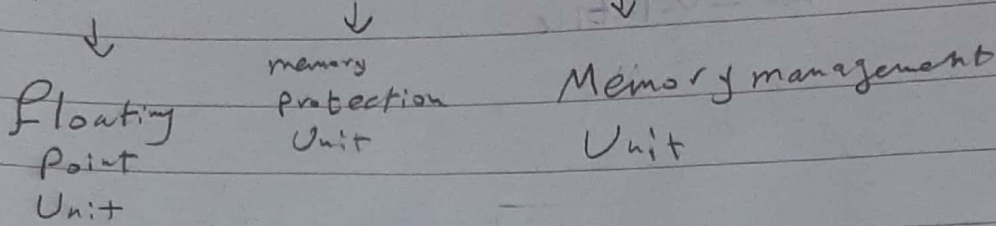 floating
Point
Unit
memory
protection
Unit
Memory management
Unit